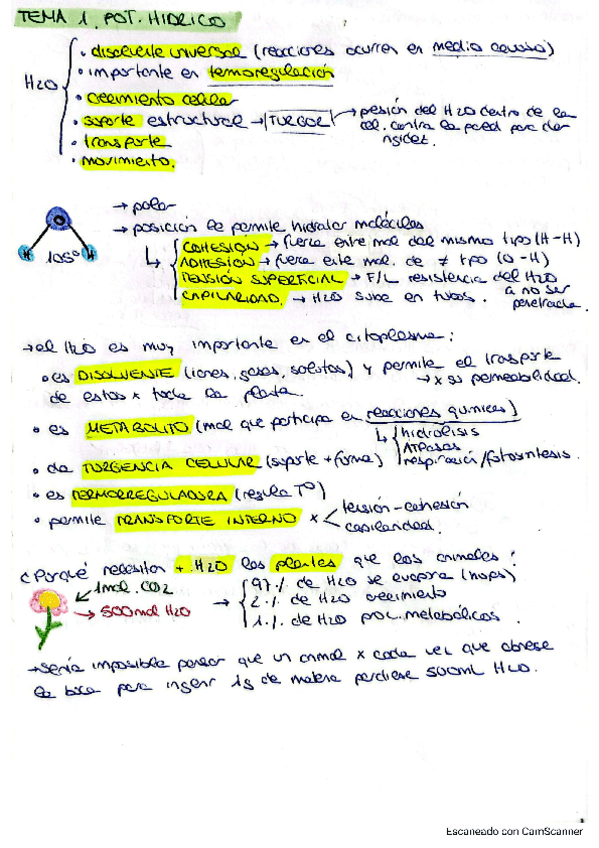 TEMA 1. POT. HÍDRICO
H2O
• disolvente universal (reacciones ocurren en medio acuoso)
• importante en termoregulación
• crecimiento celular
• soporte estructural → TURGOR → presión del H2O dentro de la
cel. contra la pared para dar
rigidez.
• transporte
• movimiento.
→ polar
→ posición le permite hidratar moléculas
H 105° H
COHESIÓN → fuerza entre mol del mismo tipo (H-H)
ADHESIÓN → fuerza entre mol. de ≠ tipo (O-H)
TENSIÓN SUPERFICIAL → F/L resistencia del H2O
a no ser
penetrada.
CAPILARIDAD. → H2O sube en tubos.
→ el H2O es muy importante en el citoplasma:
• es DISOLVENTE (iones, gases, solutos) y permite el trasporte
de estos x toda la planta.
→ x su permeabilidad.
• es METABOLITO (mol que participa en reacciones químicas)
hidrólisis
ATPasas
respiración/fotosíntesis.
• da TURGENCIA CELULAR (soporte + forma)
• es TERMORREGULADORA (regula Tº)
• permite TRANSPORTE INTERNO x
tensión-cohesión
capilaridad.
¿Porqué necesitan + H2O las plantes que los animales?
1mol CO2
→ 500mol H2O
→ 97% de H2O se evapora (hojas)
2% de H2O crecimiento
1% de H2O metabólicos.
→ sería imposible pensar que un animal x cada vez que abriese
la boca para ingerir 1g de materia perdiese 500ml H2O.
Escaneado con CamScanner